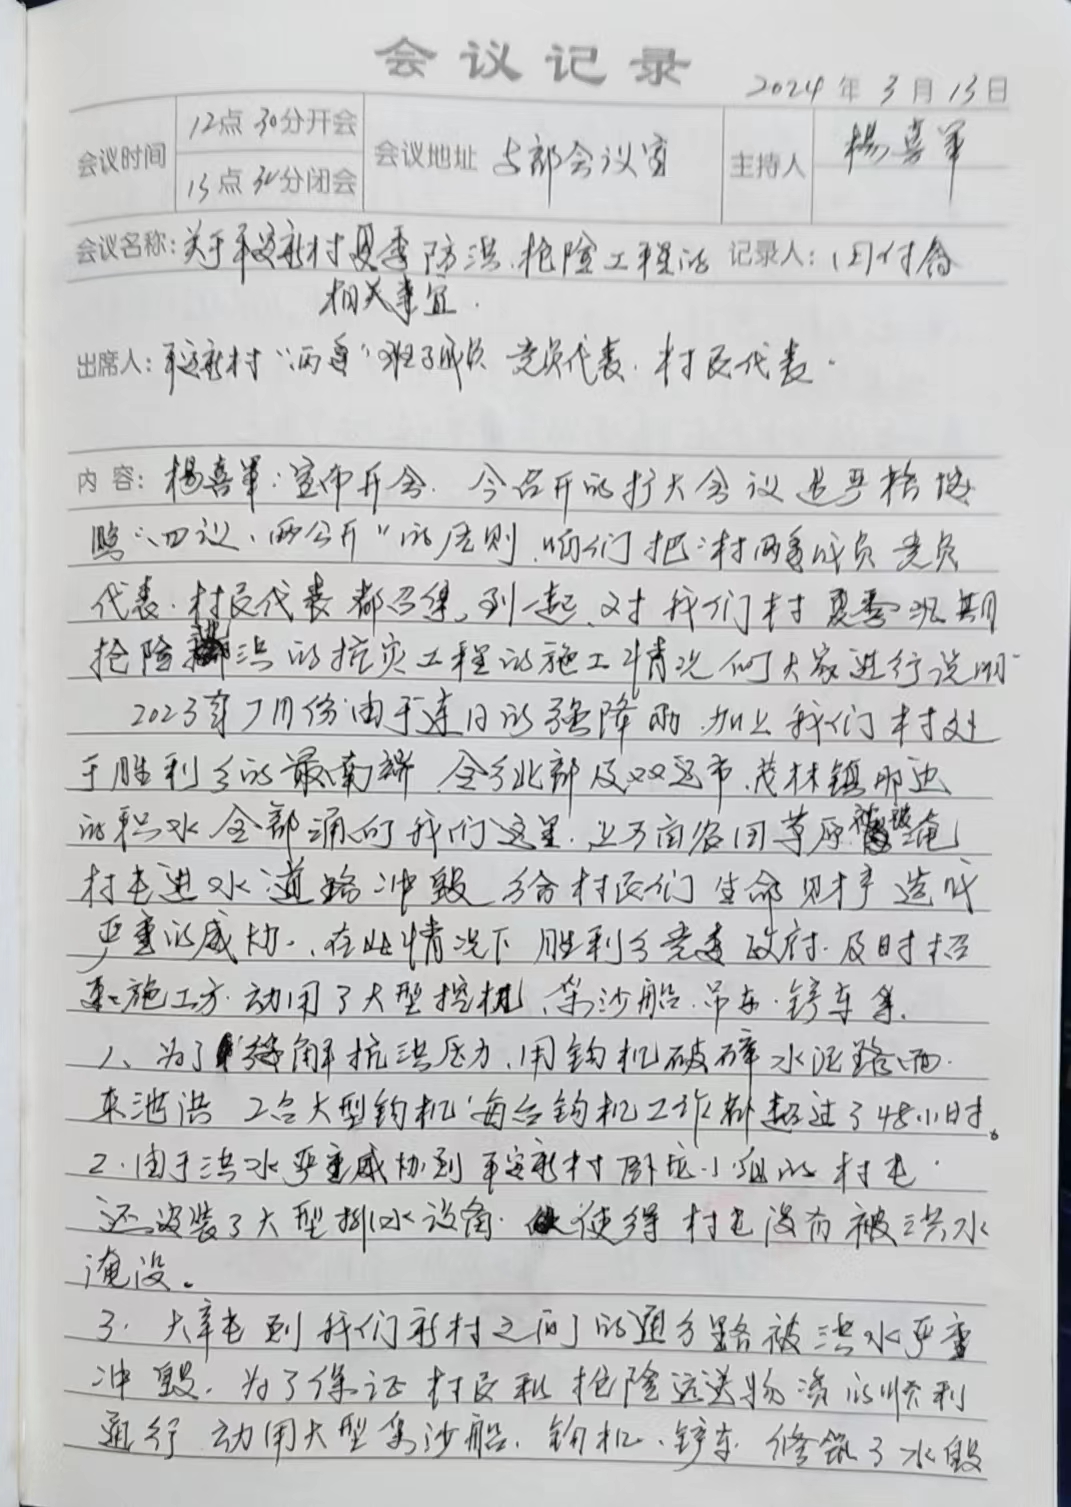 会议记录
2024年3月13日
会议时间 12点30分开会 会议地址 部会议室 主持人 杨喜军
13点30分闭会
会议名称:关于平安新村夏季防洪、抢险工程的 记录人:付
相关事宜.
出席人:平安新村"两委"班子成员 党员代表.村民代表.
内容:杨喜军:宣布开会. 今召开的扩大会议是严格按
照"四议、两公开"的原则,咱们把村两委成员 党员
代表.村民代表都召集到一起,对我们村夏季汛期
抢险洪的抗灾工程的施工情况向大家进行说明
2023年7月份由于连日的强降雨,加上我们村处
于胜利乡的最南端 全乡北部及双辽市、茂林镇那边
的积水全部涌向我们这里.上万亩农田草原被淹
村屯进水 道路冲毁 给村民们生命财产造成
严重的威协.在此情况下 胜利乡党委政府.及时招
来施工方.动用了大型挖机、采沙船.吊车.铲车等.
1、为了缓解抗洪压力,用钩机破碎水泥路面.
来泄洪 2台大型钩机 每台钩机工作都超过了48小时。
2.由于洪水严重威协到平安新村卧龙小组的村屯.
还安装了大型排水设备.使得村屯没有被洪水
淹没。
3. 大辛屯到我们新村之间的通乡路被洪水严重
冲毁.为了保证村民和抢险运送物资的顺利
通行 动用大型采沙船.钩机、铲车 修筑了水毁